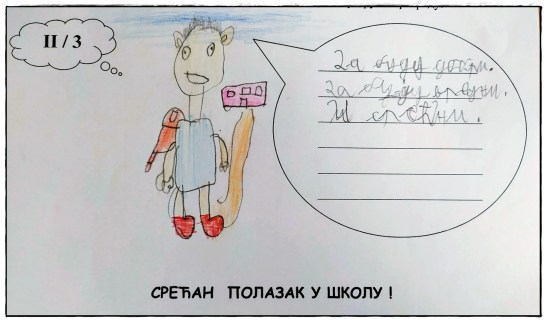 II / 3
За буду добри.
За буду вредни.
И срећни.
СРЕЋАН ПОЛАЗАК У ШКОЛУ !